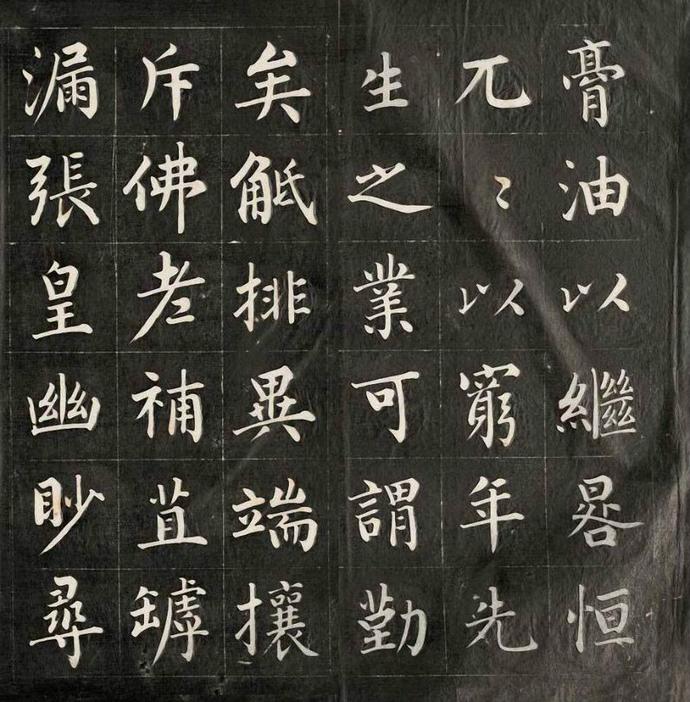 膏油以繼晷恒
兀〻以窮年先
生之業可謂勤
矣觝排異端攘
斥佛老補苴罅
漏張皇幽眇尋